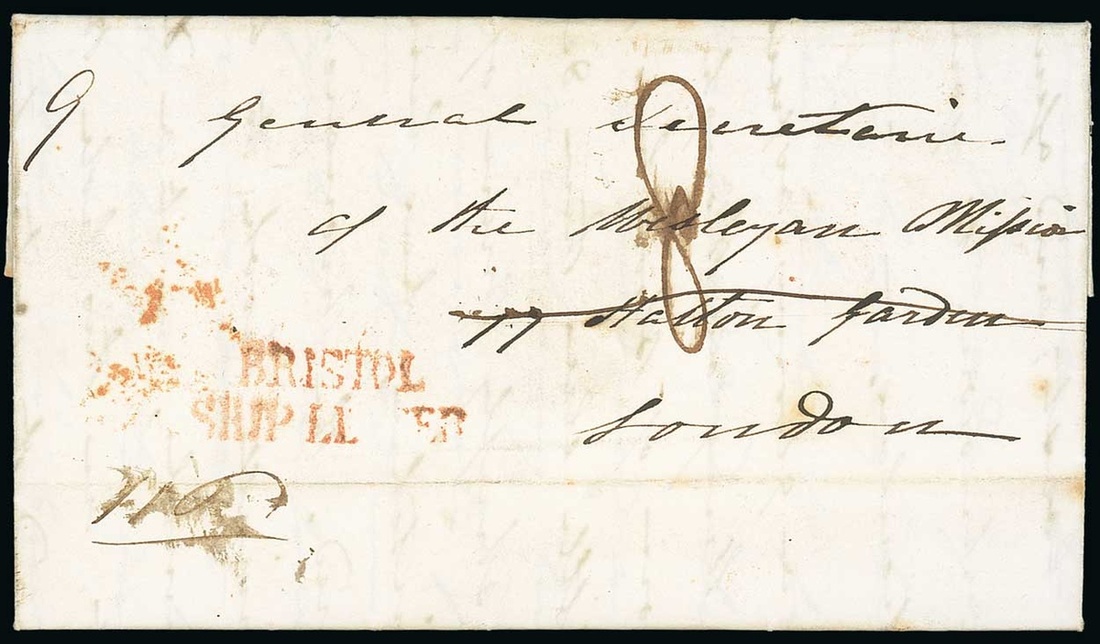 General Secretarie
of the Wesleyan Mission
77 Hatton Garden
London
8
BRISTOL
SHIP LETTER